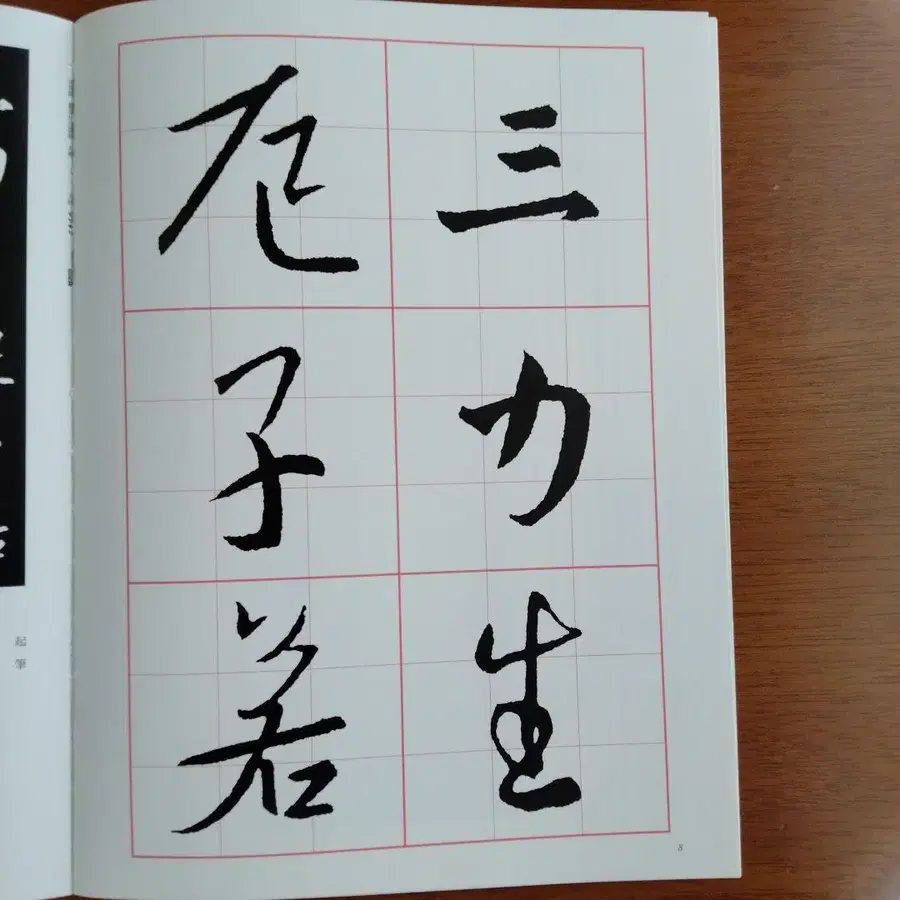 三力生
厄子若
8
起筆